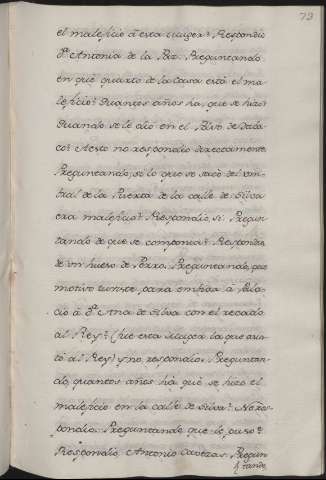 79
el maleficio á esta muger? Respondio
Dª Antonia de la Paz. Preguntando
en què quarto de la Casa està el ma-
leficio? Quantos años ha, que se hizo?
Quando se lo diò en el Polvo de Taba-
co? A esto no respondio derectamente
Preguntando, si lo que se sacò del Um-
bral de la Puerta de la calle de Silva
era maleficio? Respondio, si. Pregun-
tando de que se componia? Respondio,
de un hueso de Perro. Preguntando, que
motivo tuviste, para embiar à Pala-
cio à Dª Ana de Silva con el recado
al Rey? (fue esta Muger la que asus-
tò al Rey) y no respondio. Preguntan-
do, quantos años ha què se hizo el
maleficio en la calle de Silva? No Res-
pondio. Preguntando que le puso?
Respondio Antonio Cabezas. Pregun-
tando